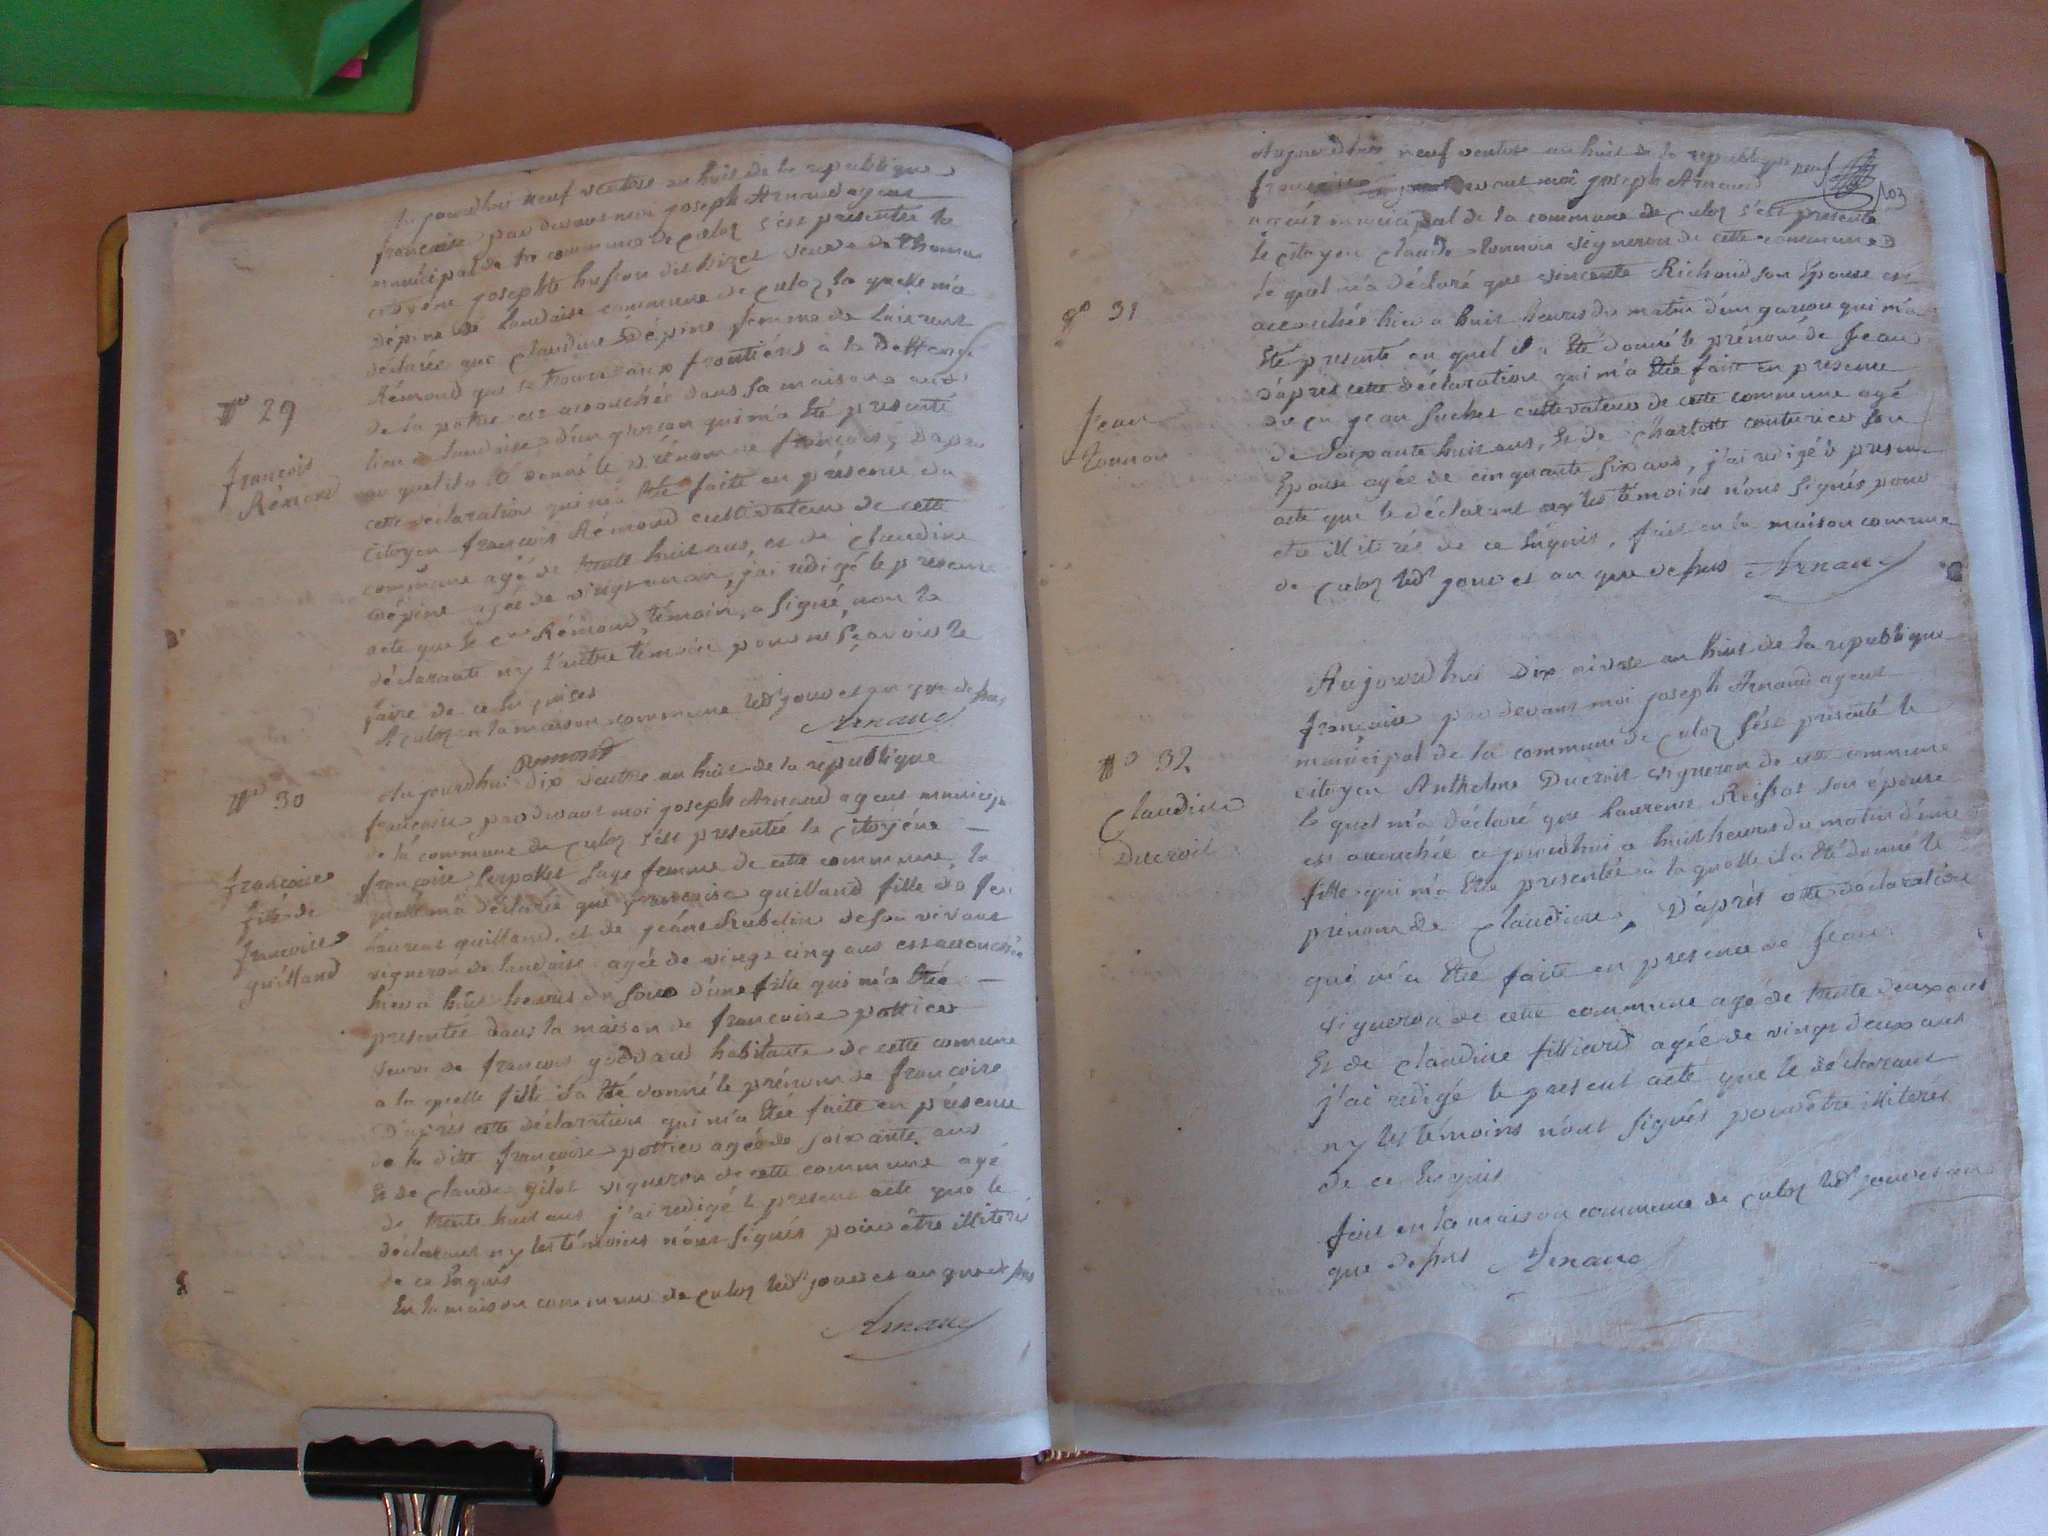 Aujourdhui neuf ventose an huit de la republique
francaise par devant moi joseph Arnaud agent
municipal de la commune de culoz s'est presentée la
citoyene josephte husson dit veuve de thomas
dépine de landaise commune de culoz, la quelle m'a
déclarée que claudine Dépine femme de laurent
Rémond qui se trouve aux frontiéres à la Deffense
de la patrie est accouchée dans sa maison au dit
lieu de landaise d'un garcon qui m'a été presenté
au quel il a été donné le prénom de françois, Dapres
cette déclaration qui m'a été faite en présence du
citoyen francois Rémond cultivateur de cette
commune agé de trente huit ans, et de claudine
Dépine agée de vingt un an, j'ai redigé le present
acte que le c.en Rémond, témoin, a signé, non la
déclarante ny l'autre témoin pour ne sçavoir le
faire de ce enquises
A culoz en la maison commune lesd. jour et an que dessus
Remond Arnaud
N° 29
françois
Rémond
Aujourdhui dix ventose an huit de la republique
francoise par devant moi joseph Arnaud agent municipal
de la commune de culoz s'est presentée la citoyéne
françoise serpollet sage femme de cette commune, la
quelle m'a déclarée que francoise guilland fille de feu
laurent guilland, et de jeane Rubelin de son vivant
vigneron de landaise agée de vingt cinq ans est accouchée
hier a huit heures du soir d'une fille qui m'a été
presentée dans la maison de francoise pottier
veuve de francois goddard habitante de cette comune
a la quelle fille il a été donné le prénom de francoise
D'aprés cette déclaration qui m'a été faite en présence
de la dite francoise pottier agée de soixante ans
et de claude gilot vigneron de cette commune agé
de trente huit ans j'ai redigé le present acte que le
déclarant ny les témoins n'ont signés pour être illiterés
de ce enquis
En la maison commune de culoz lesd. jour et an que dessus
Arnaud
N° 30
francoise
fille de
francoise
guilland
neuf
103
Aujourdhui neuf ventose an huit de la republique
francaise par devant moi joseph Arnaud
agent municipal de la commune de culoz s'est presenté
le citoyen claude tonnon vigneron de cette commune
le quel m'a déclaré que vincente Richard son Epouse est
accouchée hier a huit heures du matin d'un garcon qui m'a
été presenté au quel il a été donné le prénom de Jean
d'apres cette déclaration qui m'a été faite en presence
du c.en jean suchet cultivateur de cette commune agé
de soixante huit ans, et de charlotte couturier son
Epouse agée de cinquante six ans, j'ai redigé le present
acte que le déclarant ny les témoins n'ont signés pour
etre illiterés de ce enquis, fait en la maison commune
de culoz lesd. jour et an que dessus Arnaud
N° 31
Jean
tonnon
Aujourdhui dix nivose an huit de la republique
francaise par devant moi joseph Arnaud agent
municipal de la commune de culoz s'est presenté le
citoyen Anthelme Ducroit vigneron de cette commune
le quel m'a déclaré que Laurence Reissot son épouse
est accouchée ce jourdhui a huit heures du matin d'une
fille qui m'a été presentée à la quelle il a été donné le
prénom de claudine, D'après cette déclaration
qui m'a été faite en presence de Jean
vigneron de cette commune agé de trente deux ans
Et de claudine filliard agée de vingt deux ans
j'ai redigé le present acte que le déclarant
ny les témoins n'ont signés pour être illiterés
de ce enquis
fait en la maison commune de culoz lesd. jour et an
que dessus Arnaud
N° 32
Claudine
Ducroit